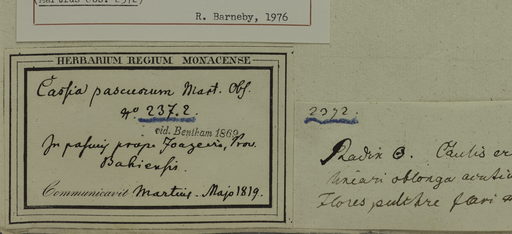 Martius Obs. 2372
R. Barneby, 1976
HERBARIUM REGIUM MONACENSE
Cassia pascuorum Mart. Obs.
No 2372.
vid. Bentham 1869
In pascuis prope Joazeiro, Prov.
Bahiensis.
Communicavit Martius. Majo 1819.
2372.
Radix Caulis er
lineari oblonga
Flores pulchre flavi